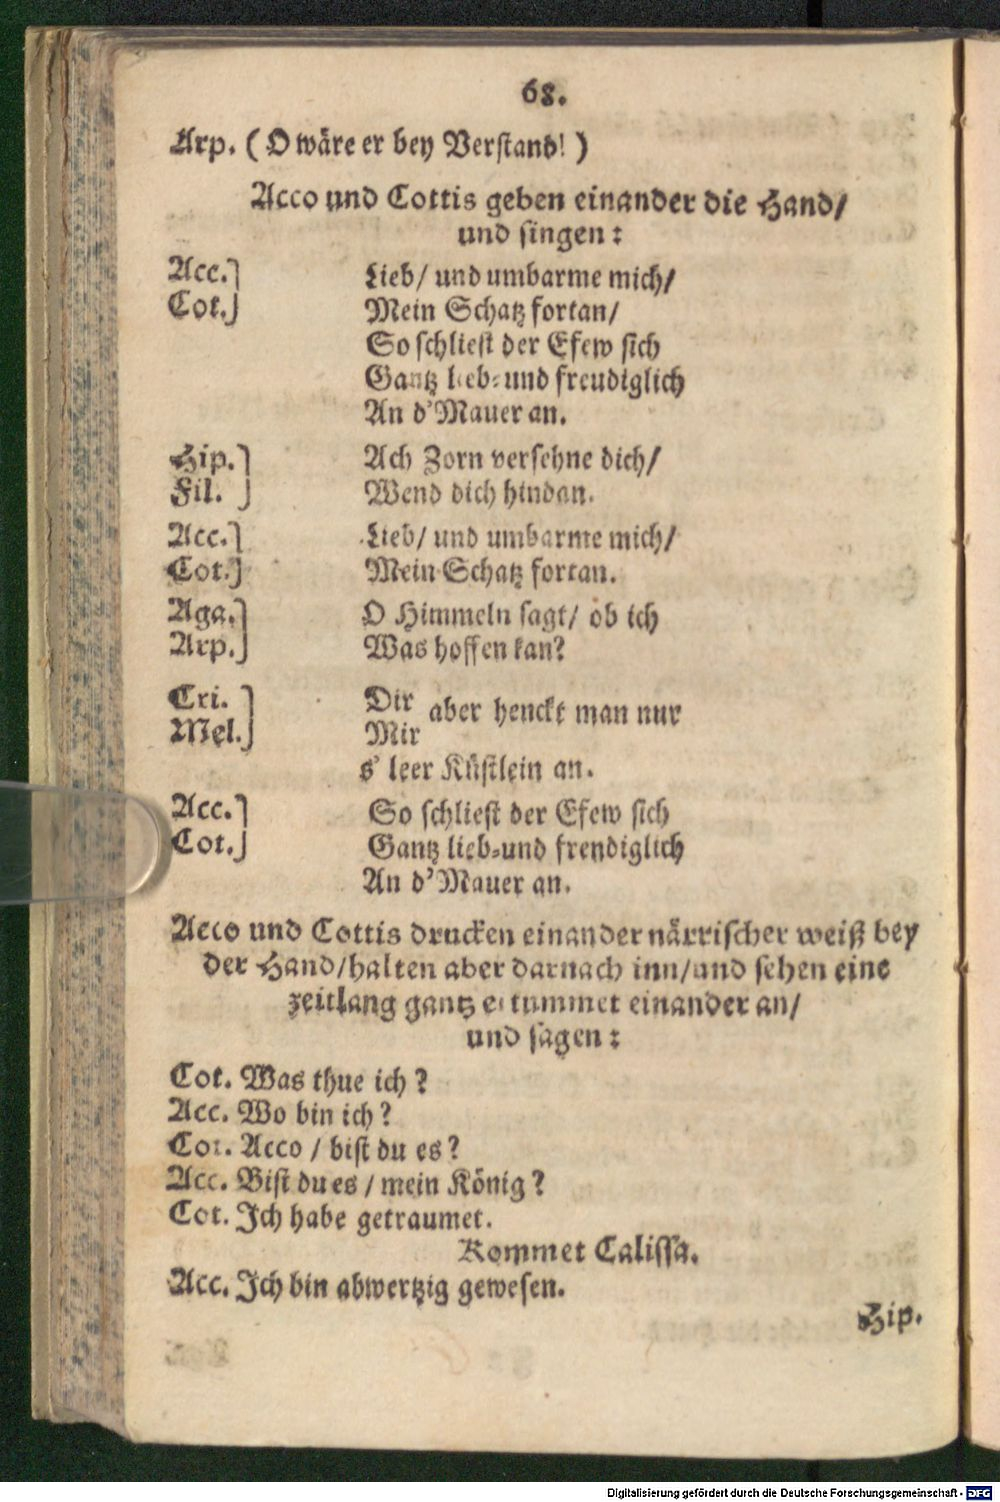 68.
Arp. ( O wäre er bey Verstand! )
Acco und Cottis geben einander die Hand/
und singen:
Acc. Lieb/ und umbarme mich/
Cot. Mein Schatz fortan/
So schliest der Efew sich
Gantz lieb- und freudiglich
An d'Mauer an.
Hip. Ach Zorn versehne dich/
Fil. Wend dich hindan.
Acc. Lieb/ und umbarme mich/
Cot. Mein Schatz fortan.
Aga. O Himmeln sagt/ ob ich
Arp. Was hoffen kan?
Cri. Dir aber henckt man nur
Mel. Mir
s' leer Küstlein an.
Acc. So schliest der Efew sich
Cot. Gantz lieb-und frendiglich
An d'Mauer an.
Acco und Cottis drucken einander närrischer weiß bey
der Hand/halten aber darnach inn/und sehen eine
zeitlang gantz einander an/
und sagen:
Cot. Was thue ich?
Acc. Wo bin ich?
Cot. Acco / bist du es?
Acc. Bist du es / mein König?
Cot. Ich habe getraumet.
Kommet Calissa.
Acc. Ich bin abwertzig gewesen.
Hip.
Digitalisierung gefördert durch die Deutsche Forschungsgemeinschaft - DFG